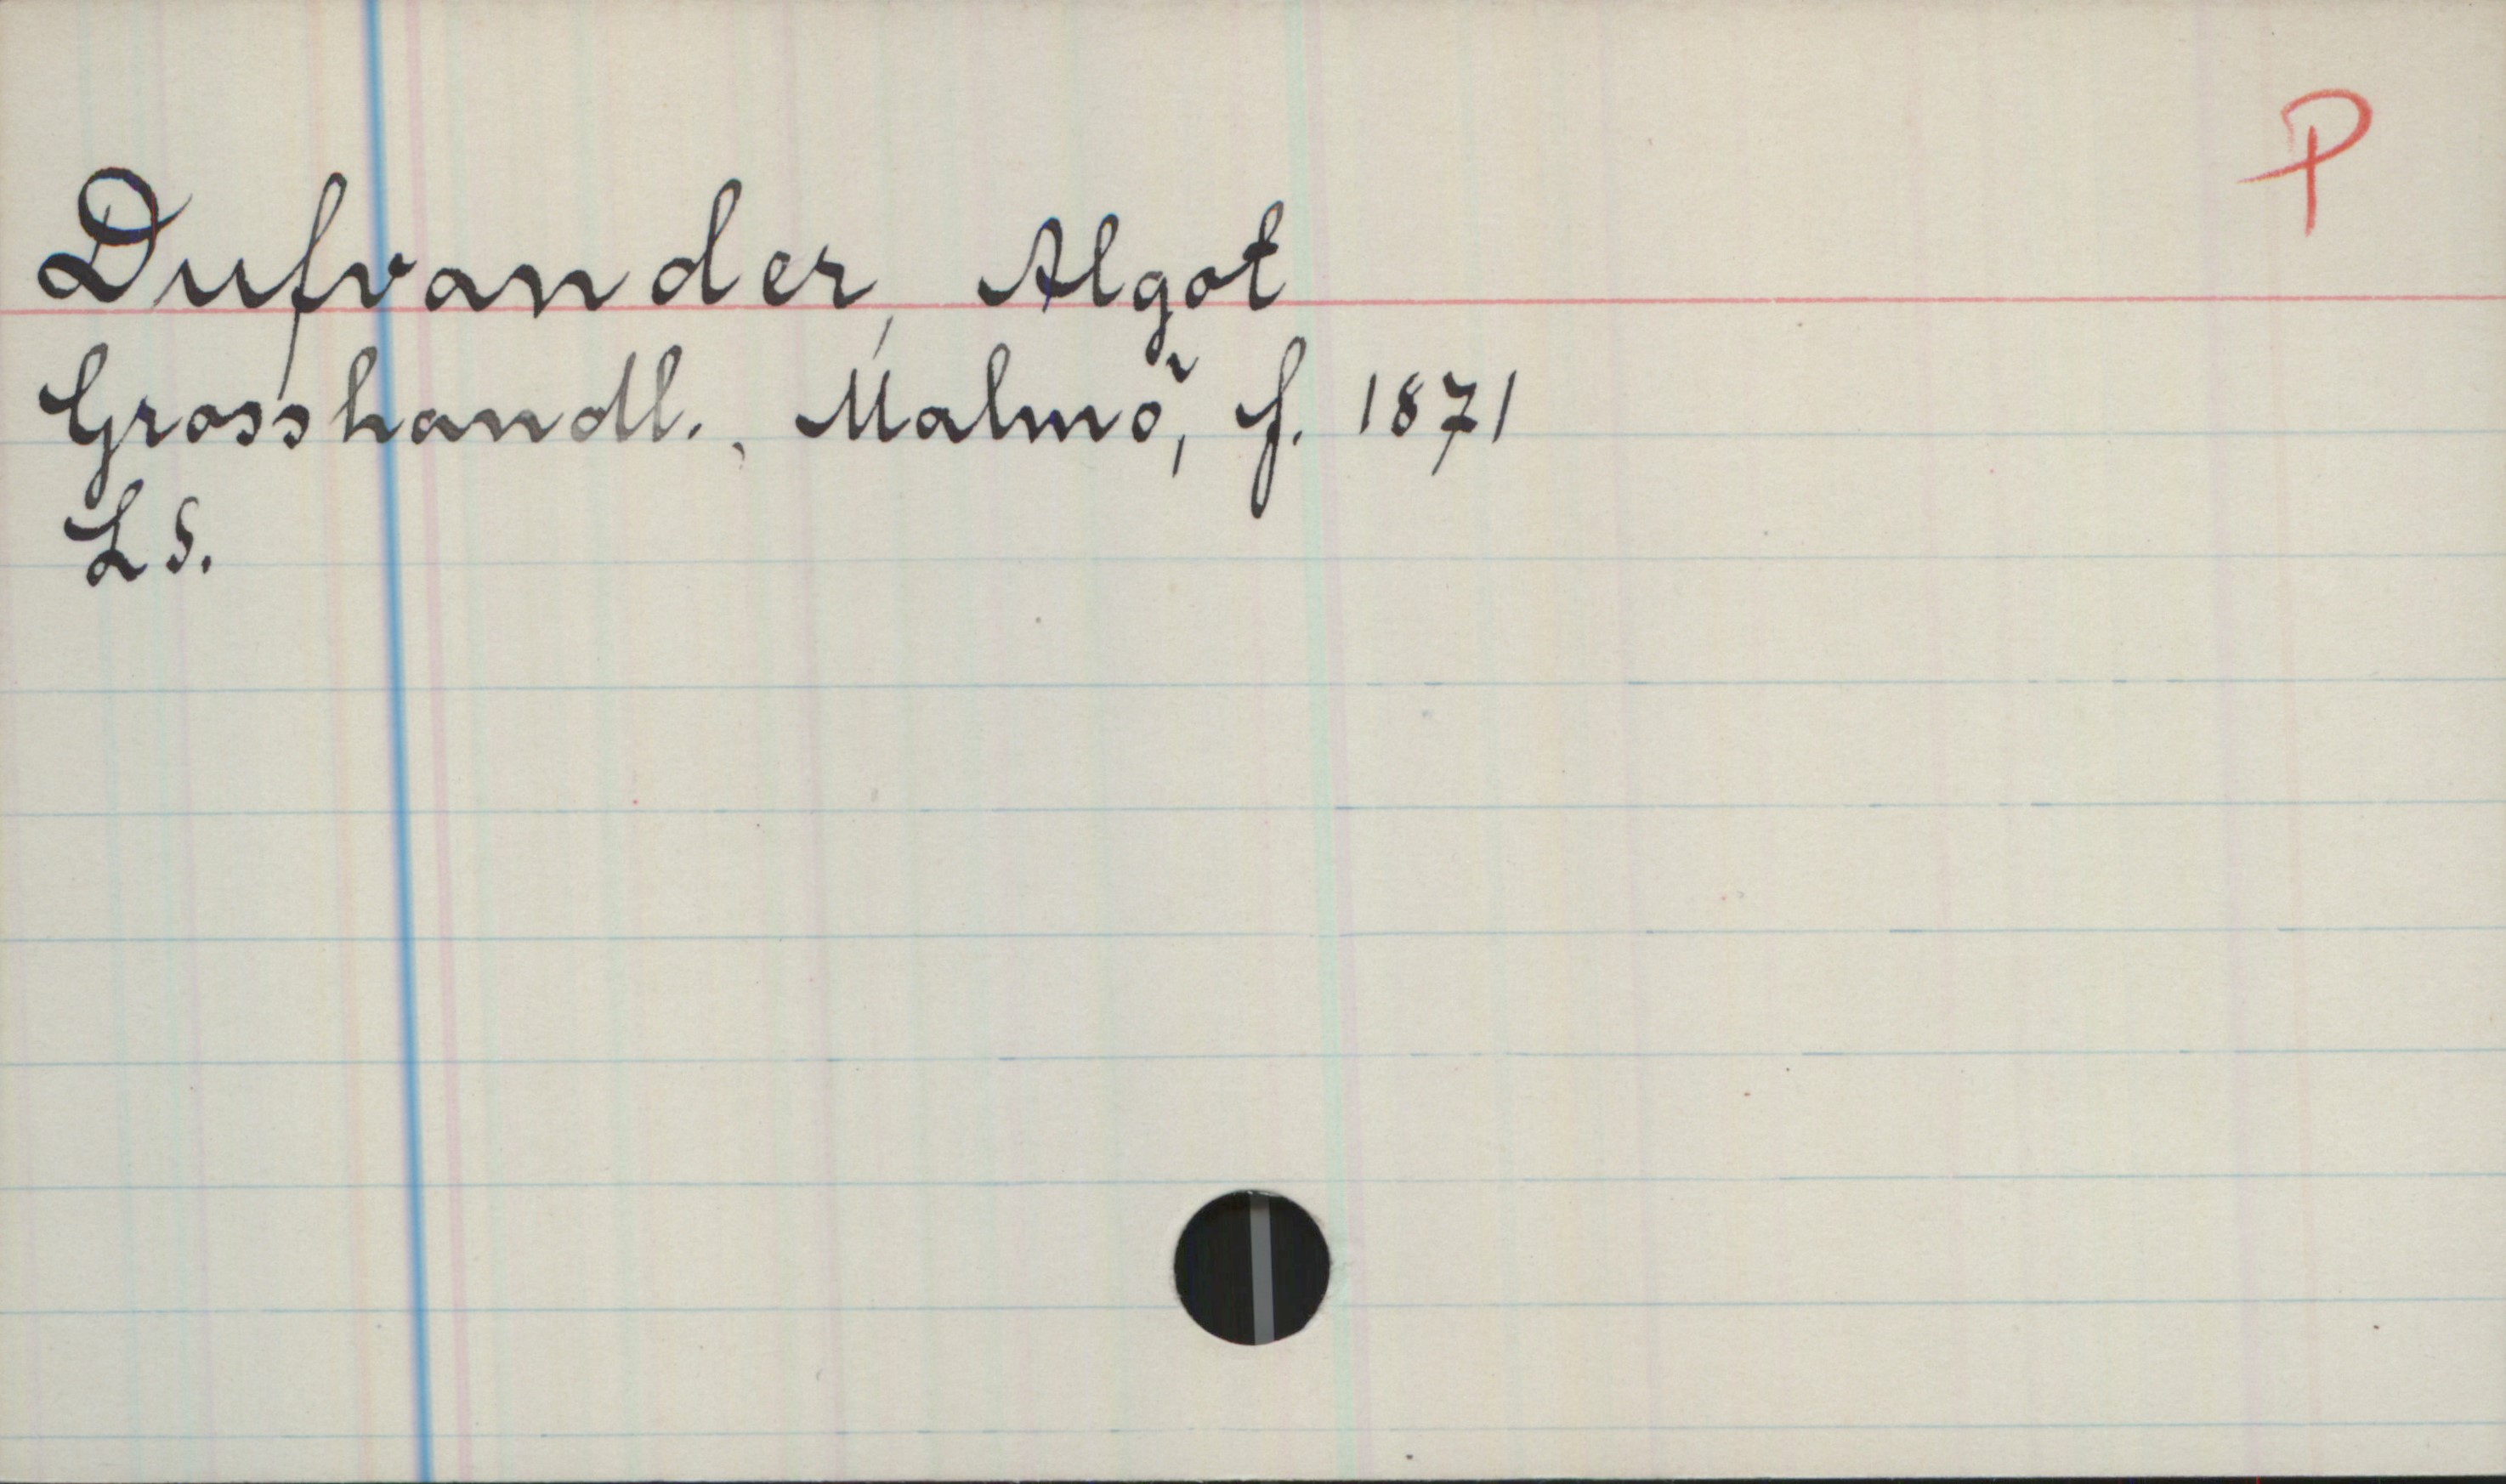 P
Dufvander, Algot
Grosshandl., Malmö, f. 1871
LS.